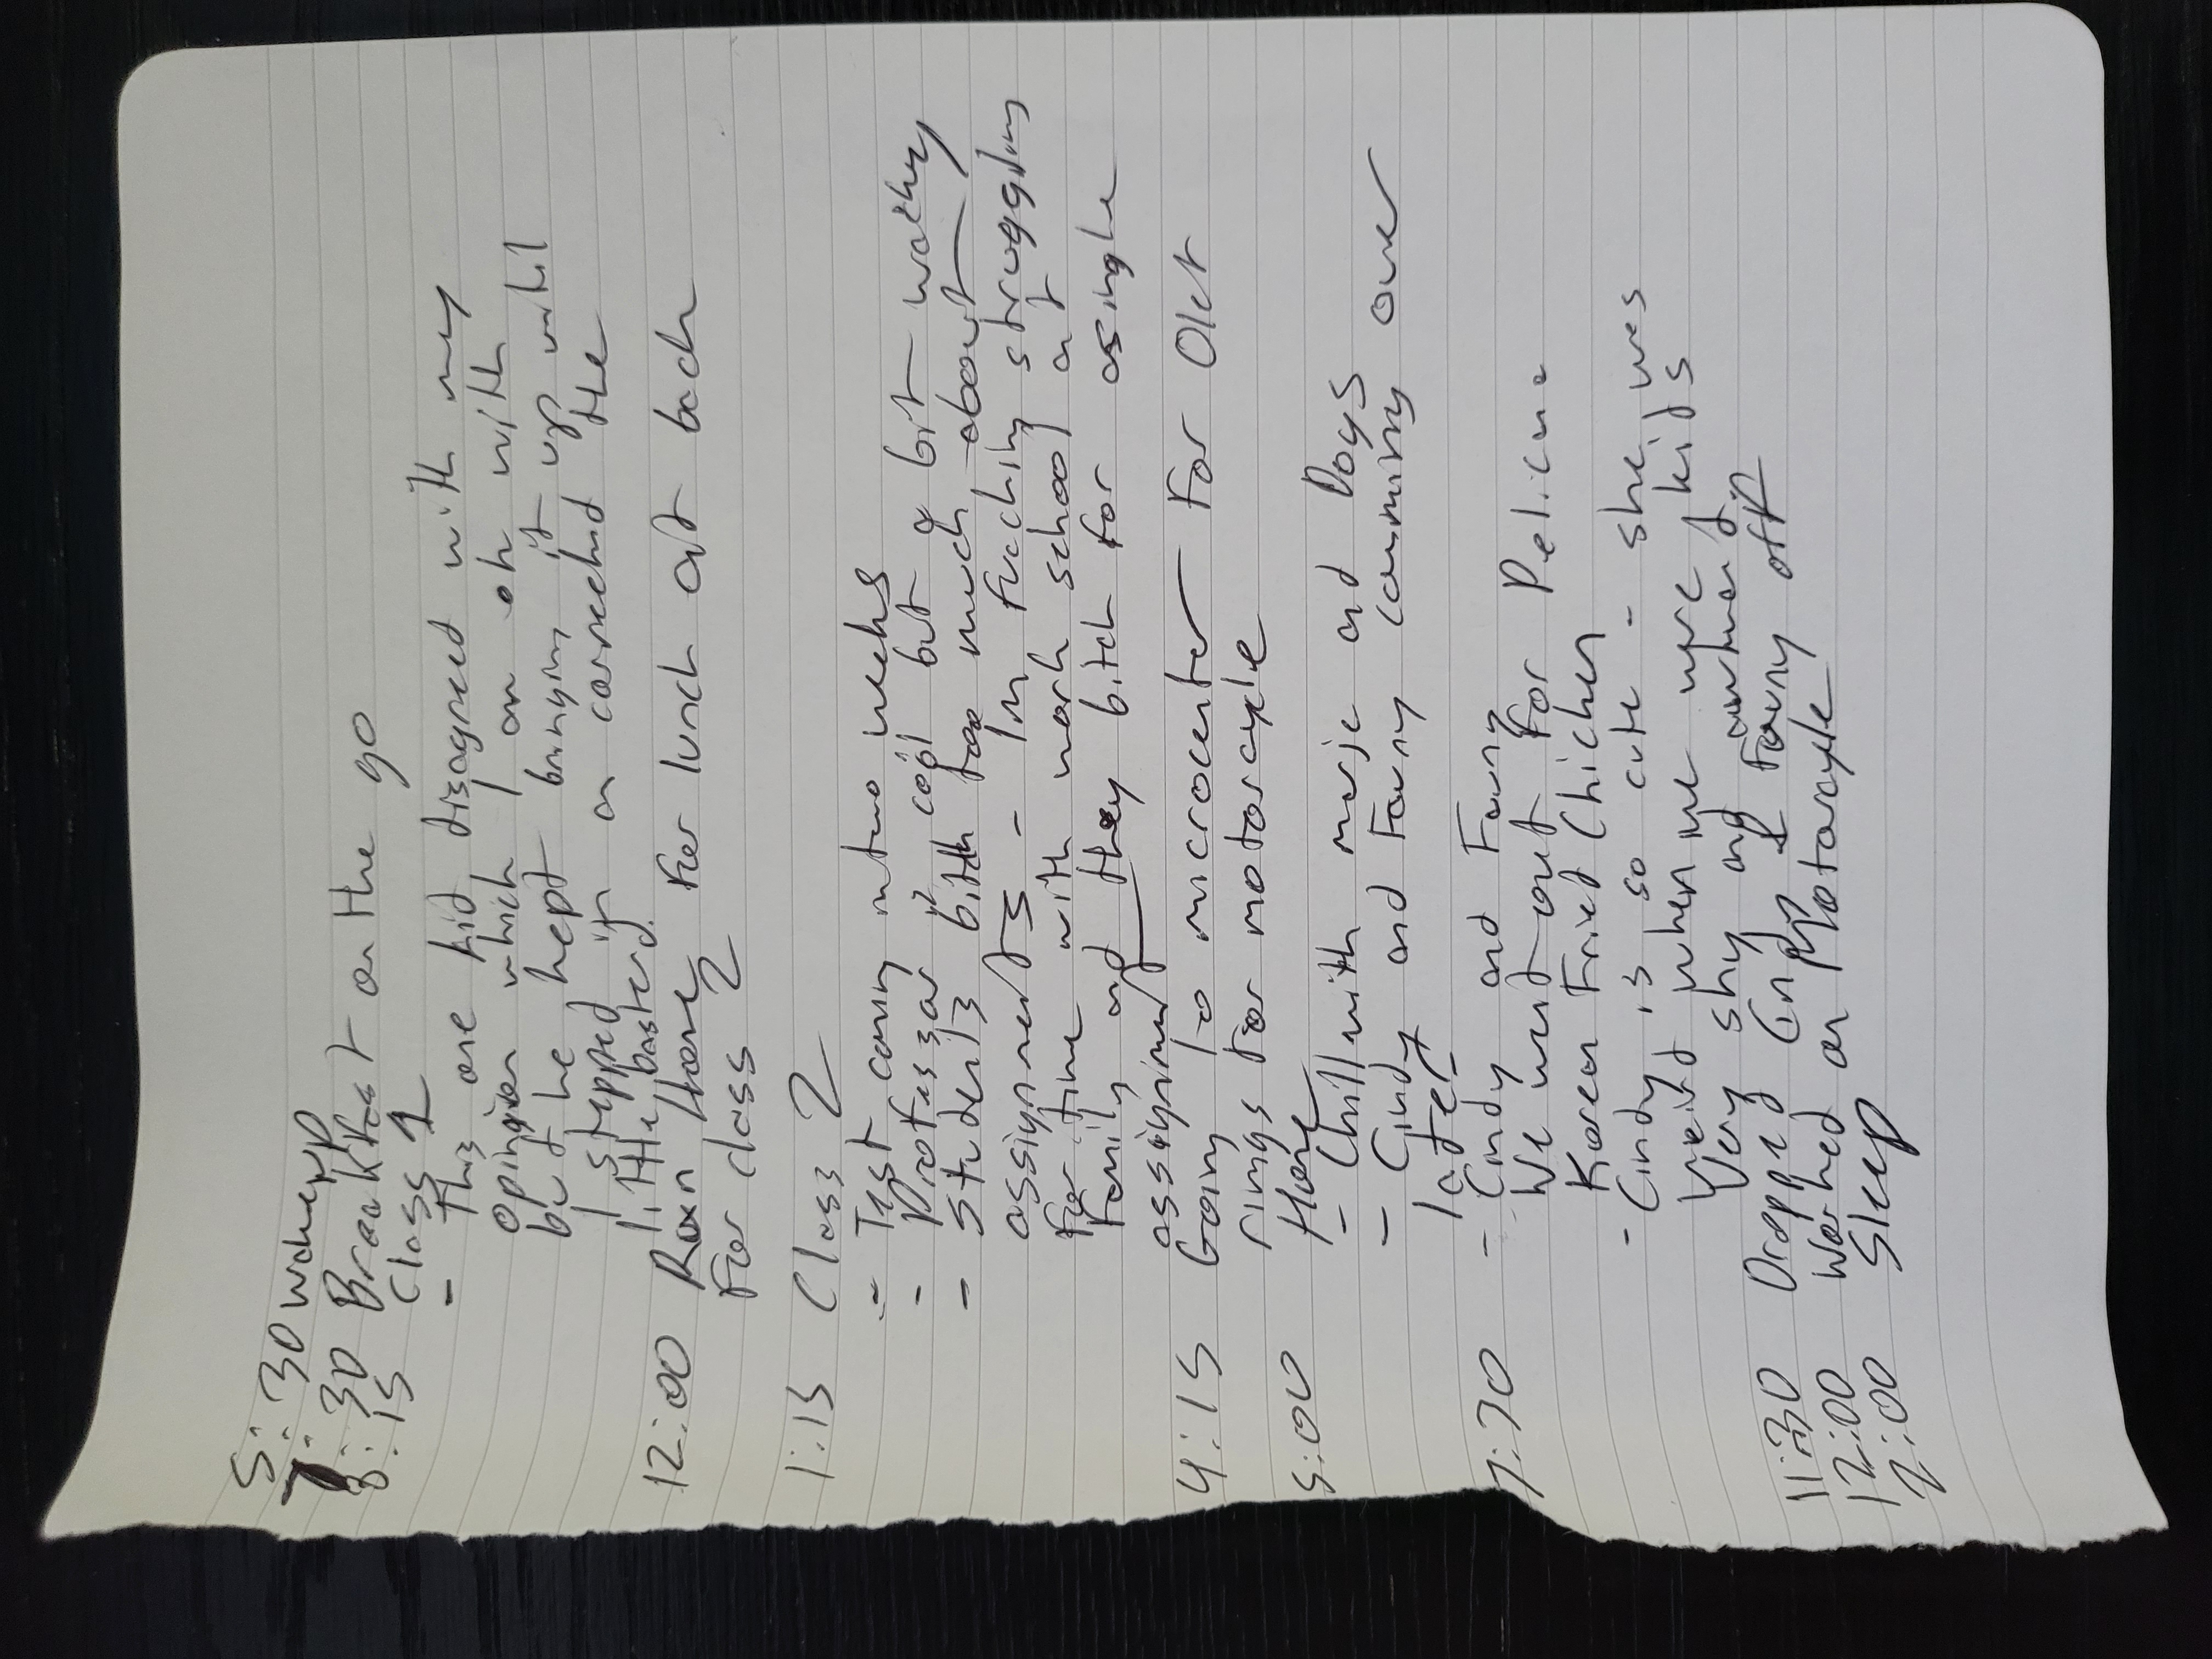 5:30 wakeup
7:30 Breakfast on the go
8:15 Class 1
- This one kid disagreed with my
opinion which I am ok with
but he kept bringing it up until
I stepped in an corrected the
little basterd.
12:00 Ran Home for lunch at back
For class 2
1:15 Class 2
- Test coming in two weeks
- Professor is cool but a bit wacky
- Students bitch too much about
assignments - Im fucking struggling
for time with work school at
Family and they bitch for a single
assignment
4:15 Going to microcenter for
rings for motorcycle
5:00 Home
- Chill with and Dogs
- Cindy and Fanny comming over
later
7:30 - Cindy and Fanny
We went out for Pelicana
Korean Fried Chicken
- Cindy is so cute - she was
weird when we were kids
Very shy and awkward.
11:30 Dropped Cindy & Fanny off
12:00 Worked on Motorcycle
2:00 Sleep